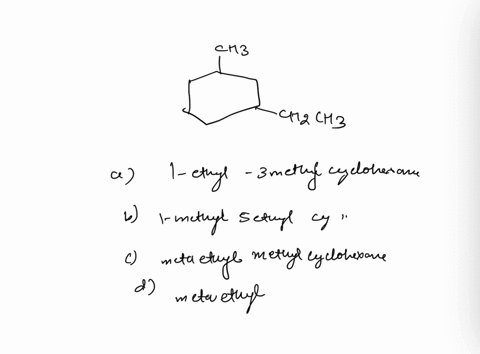 CH3
CH2 CH3
a) 1-ethyl -3methyl cyclohexane
b) 1-methyl 5ethyl cy "
c) meta ethyl methyl cyclohexane
d) meta ethyl